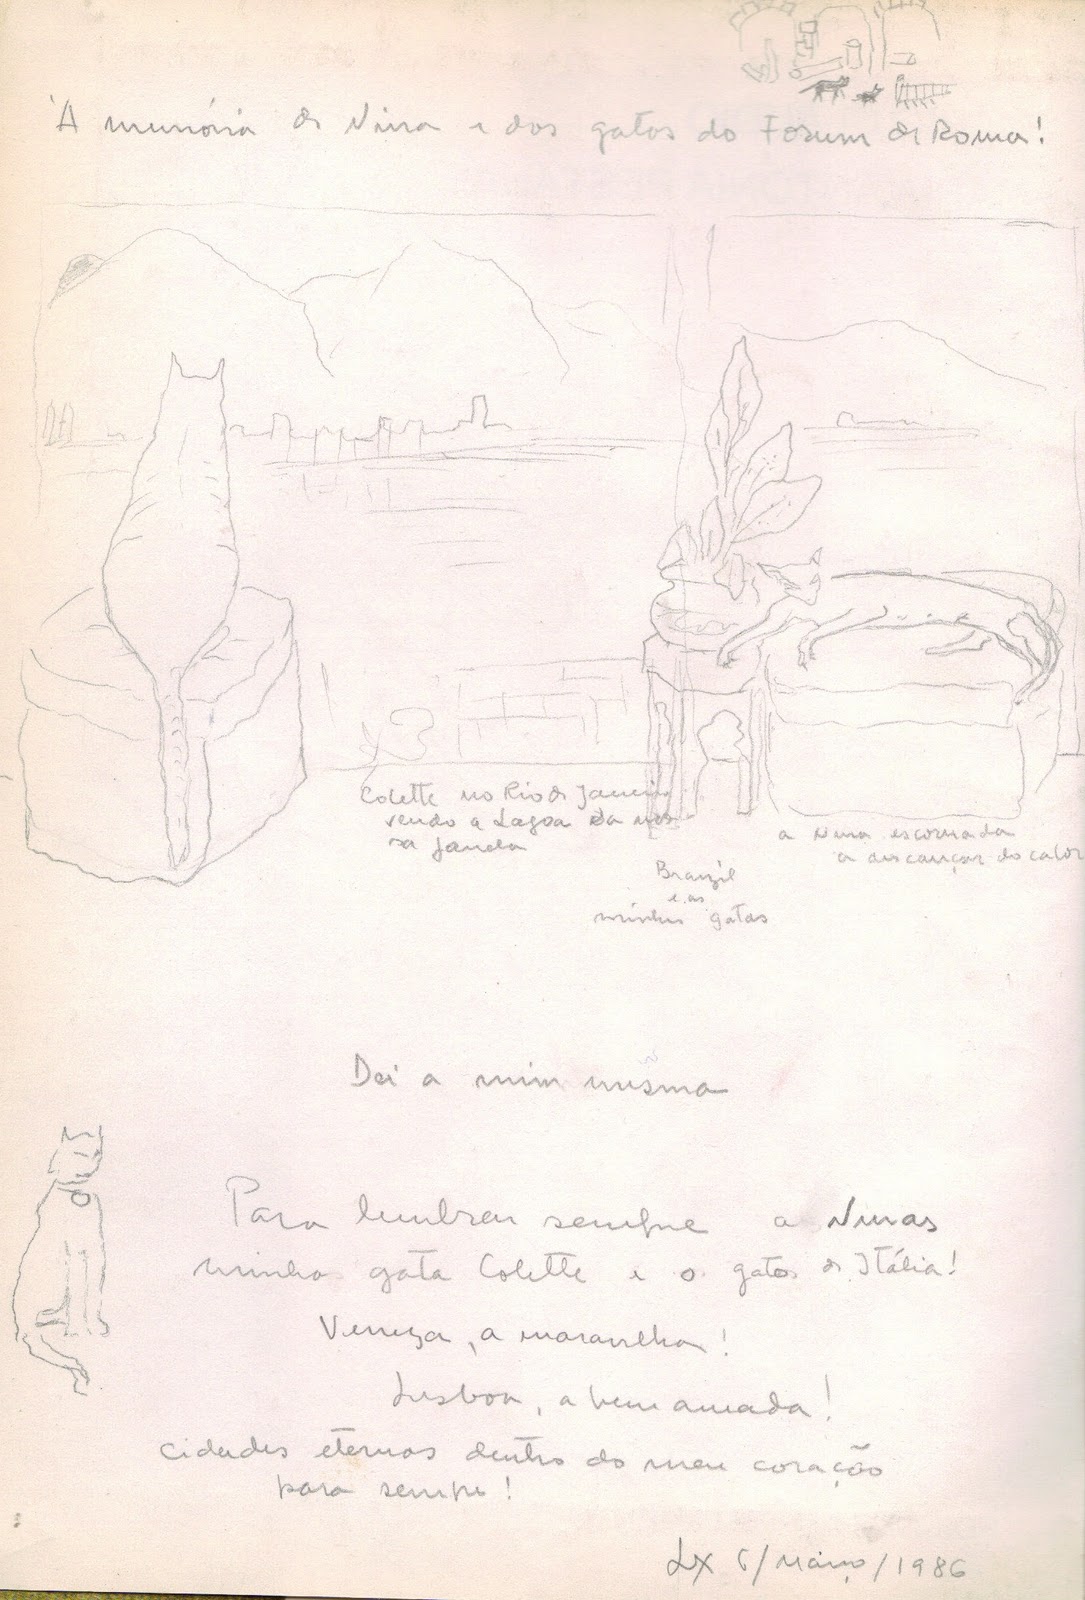 À memória de Nina e dos gatos do Forum de Roma!
Colette no Rio de Janeiro
vendo a Lagoa da nos
sa janela
a Nina escornada
a descançar do calor
Brazil
e as
minhas gatas
Dei a mim mesma
Para lembrar sempre a Ninas
minha gata Colette e o gatos de Itália!
Veneza, a maravilha!
Lisboa, a bem amada!
cidades eternas dentro do meu coração
para sempre!
Lx 6/Março/1986